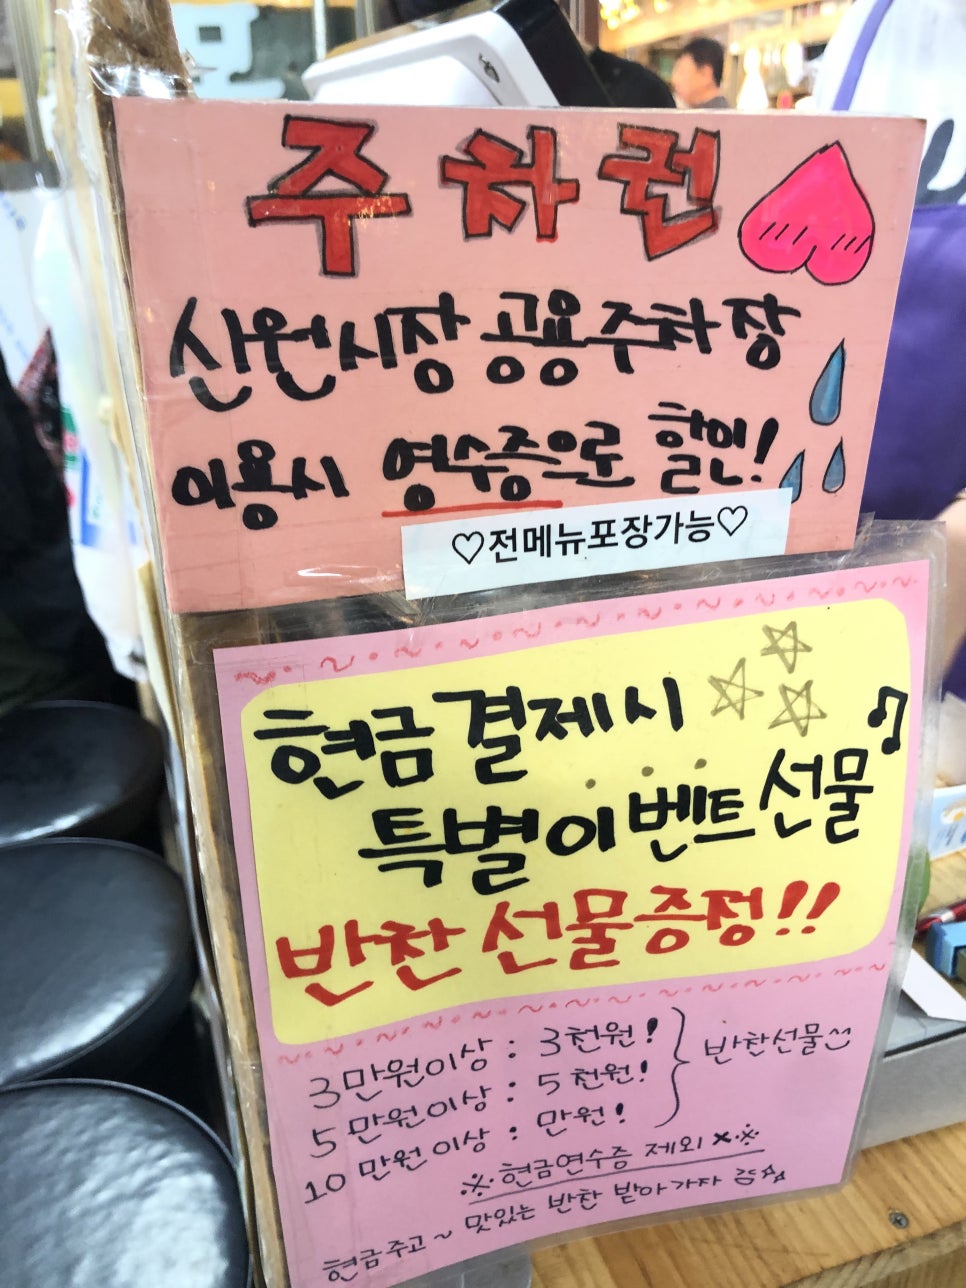 주차권
신원시장 공용주차장
이용시 영수증으로 할인!
♡전메뉴포장가능♡
현금결제시
특별이벤트선물
반찬선물증정!!
3만원이상 : 3천원!
5만원이상 : 5천원!
10만원이상 : 만원!
반찬선물
※현금연수증 제외 ×※
현금주고~ 맛있는 반찬 받아가자